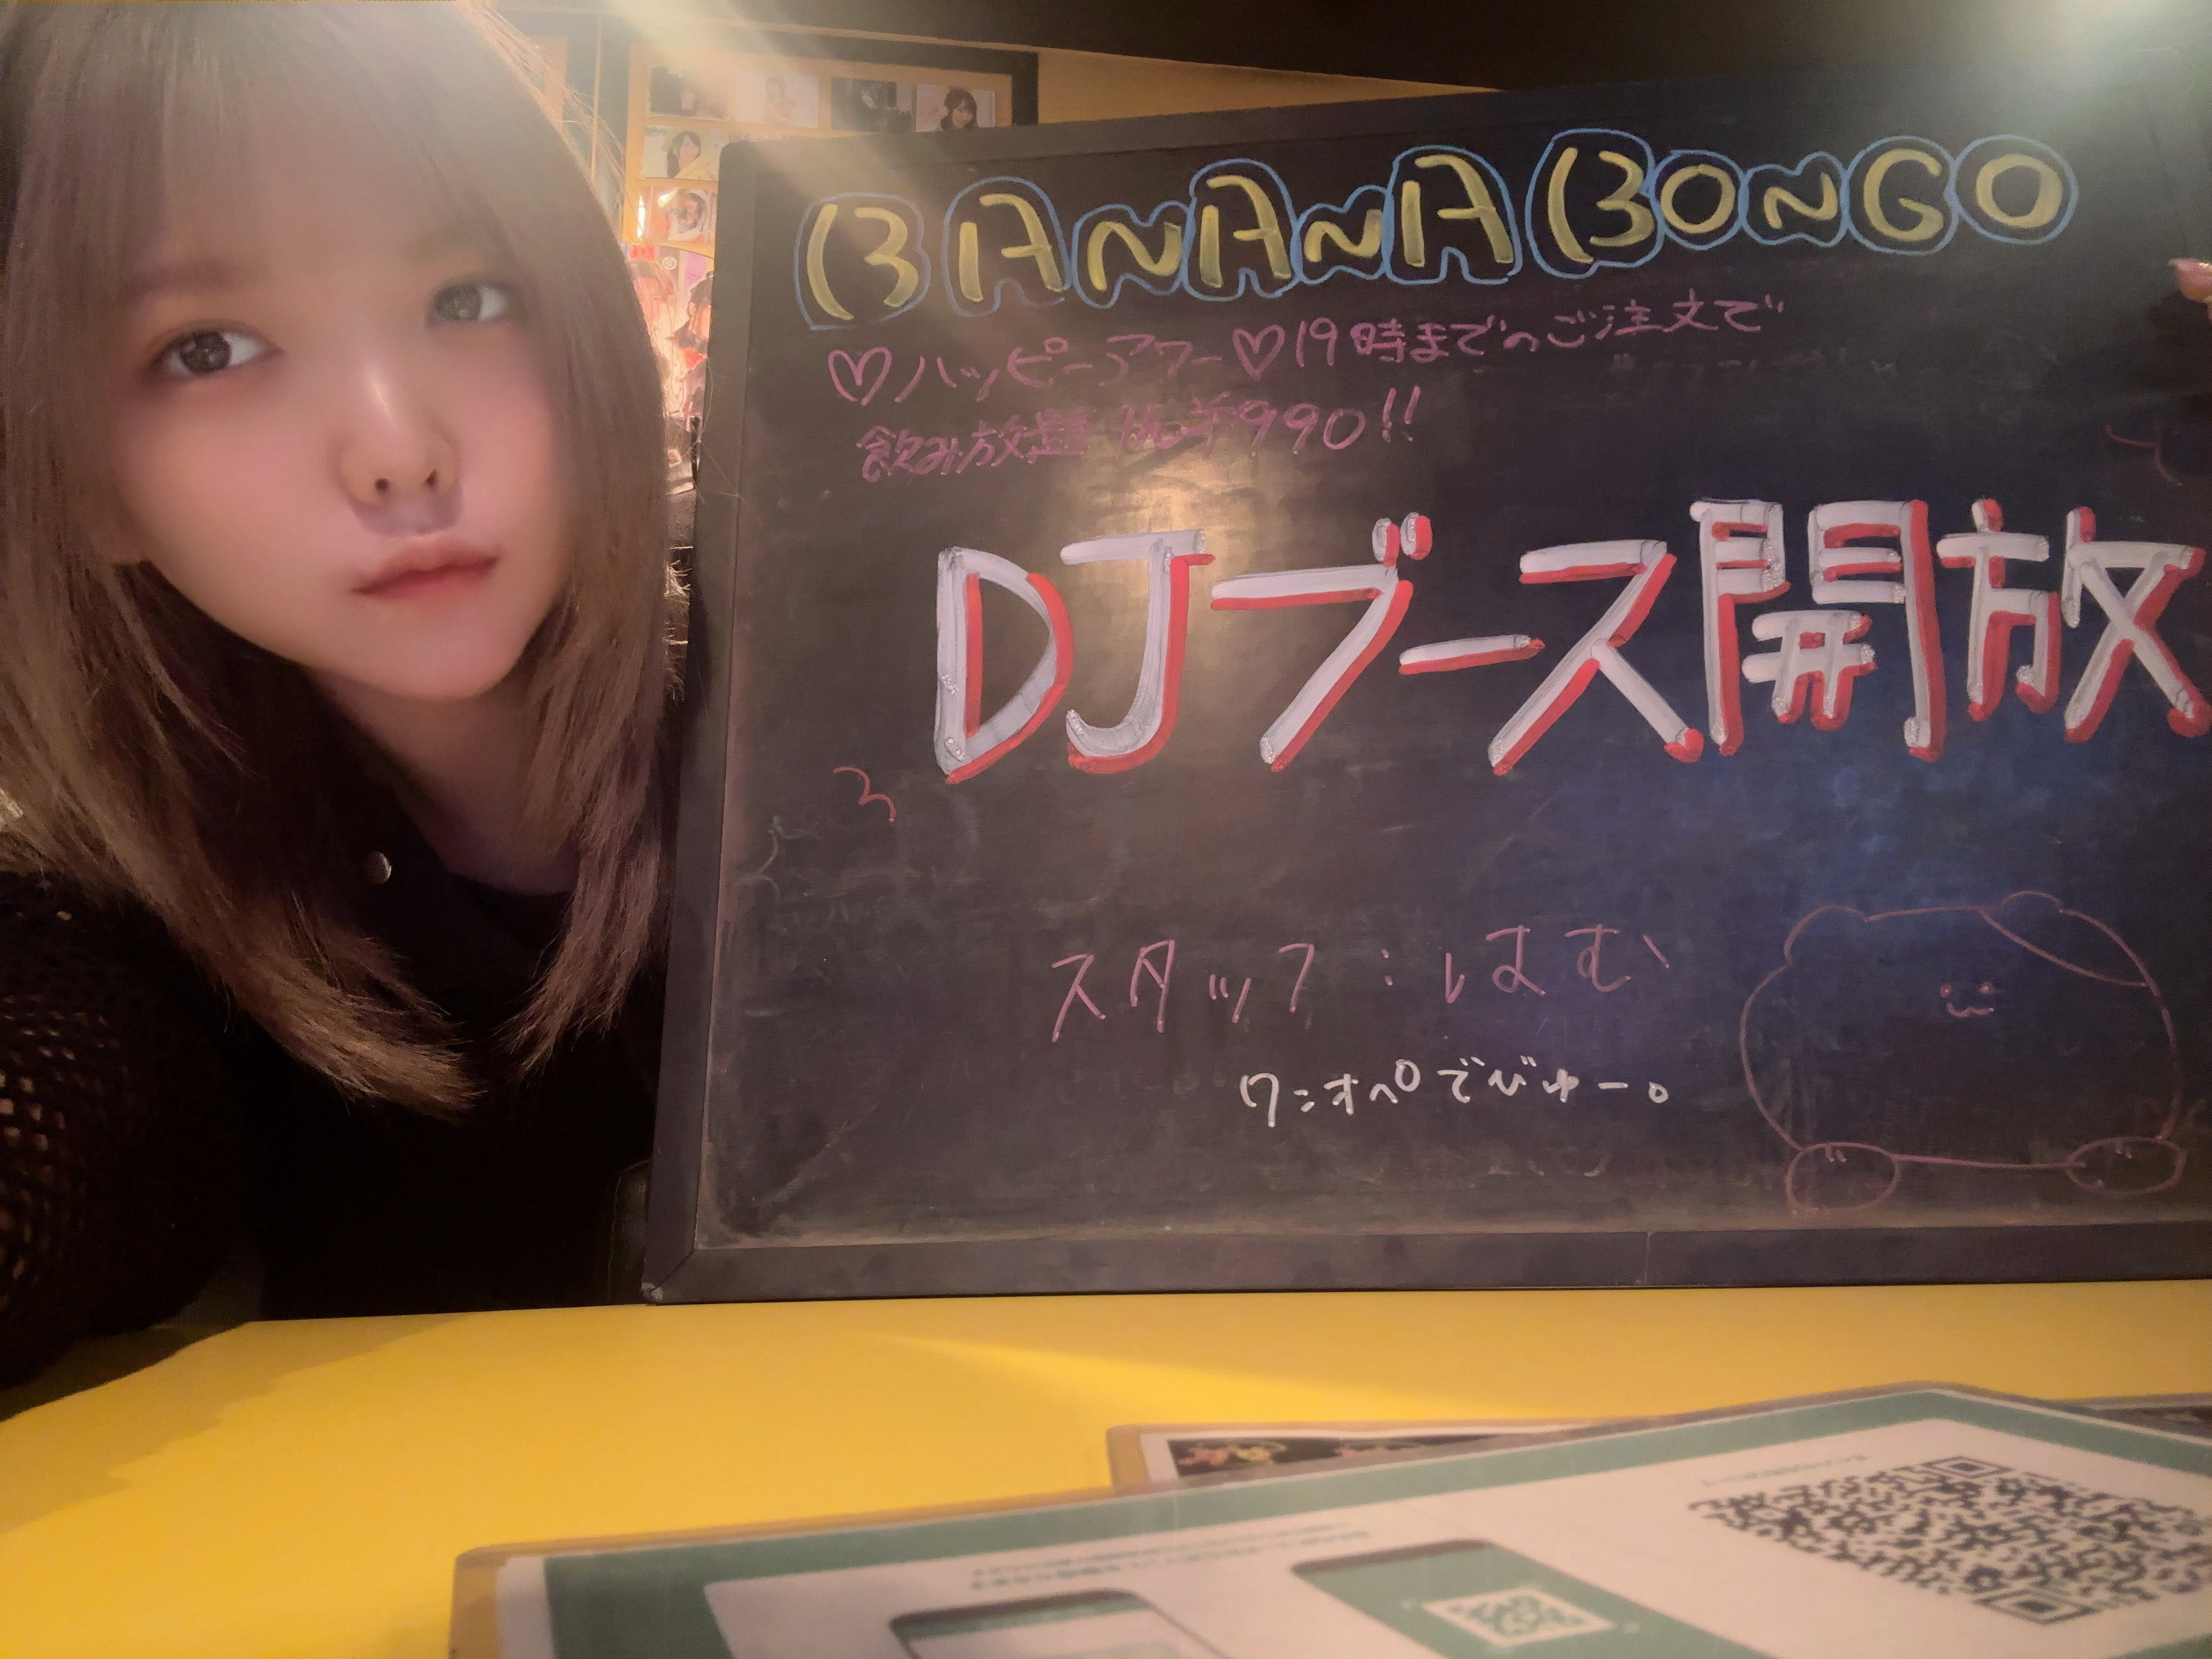 BANANA BONGO
♡ハッピーアワー♡19時までのご注文で
飲み放題 ¥990!!
DJブース開放
スタッフ:はむ
ワンオペでびゅー。